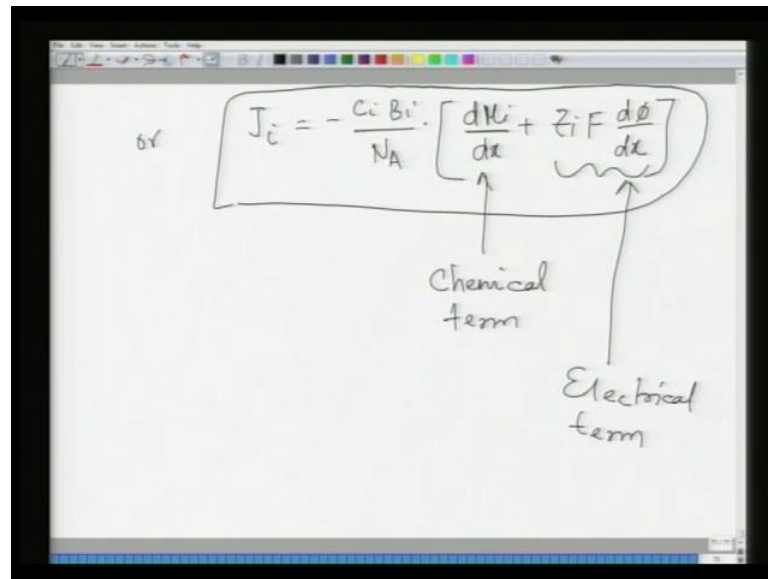 File Edit View Insert Actions Tools Help
or J_i = - C_i B_i / N_A · [ dμ_i/dx + Z_i F dφ/dx ]
Chemical
term
Electrical
term